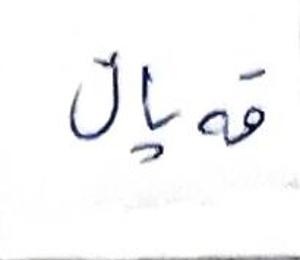 قەپاڵ